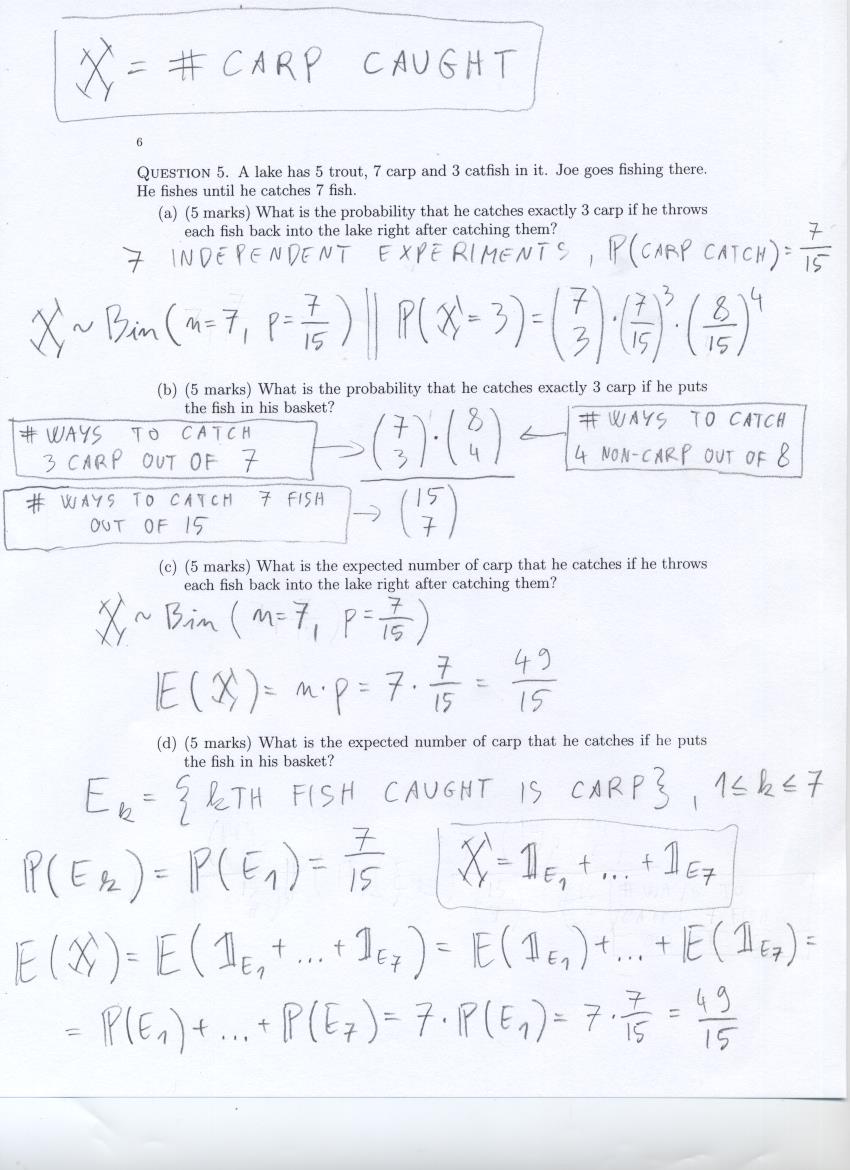 X = # CARP CAUGHT
6
QUESTION 5. A lake has 5 trout, 7 carp and 3 catfish in it. Joe goes fishing there.
He fishes until he catches 7 fish.
(a) (5 marks) What is the probability that he catches exactly 3 carp if he throws
each fish back into the lake right after catching them?
7 INDEPENDENT EXPERIMENTS, ℙ(CARP CATCH) = 7/15
X ~ Bin(n=7, p=7/15) || ℙ(X=3) = (7 3)·(7/15)^3·(8/15)^4
(b) (5 marks) What is the probability that he catches exactly 3 carp if he puts
the fish in his basket?
# WAYS TO CATCH
3 CARP OUT OF 7
→ (7 3)·(8 4) ←
# WAYS TO CATCH
4 NON-CARP OUT OF 8
# WAYS TO CATCH 7 FISH
OUT OF 15
→ (15 7)
(c) (5 marks) What is the expected number of carp that he catches if he throws
each fish back into the lake right after catching them?
X ~ Bin(n=7, p=7/15)
𝔼(X) = n·p = 7·7/15 = 49/15
(d) (5 marks) What is the expected number of carp that he catches if he puts
the fish in his basket?
E_k = {kTH FISH CAUGHT IS CARP}, 1≤k≤7
ℙ(E_k) = ℙ(E_1) = 7/15
X = 𝟙_{E_1} + ... + 𝟙_{E_7}
𝔼(X) = 𝔼(𝟙_{E_1} + ... + 𝟙_{E_7}) = 𝔼(𝟙_{E_1}) + ... + 𝔼(𝟙_{E_7}) =
= ℙ(E_1) + ... + ℙ(E_7) = 7·ℙ(E_1) = 7·7/15 = 49/15